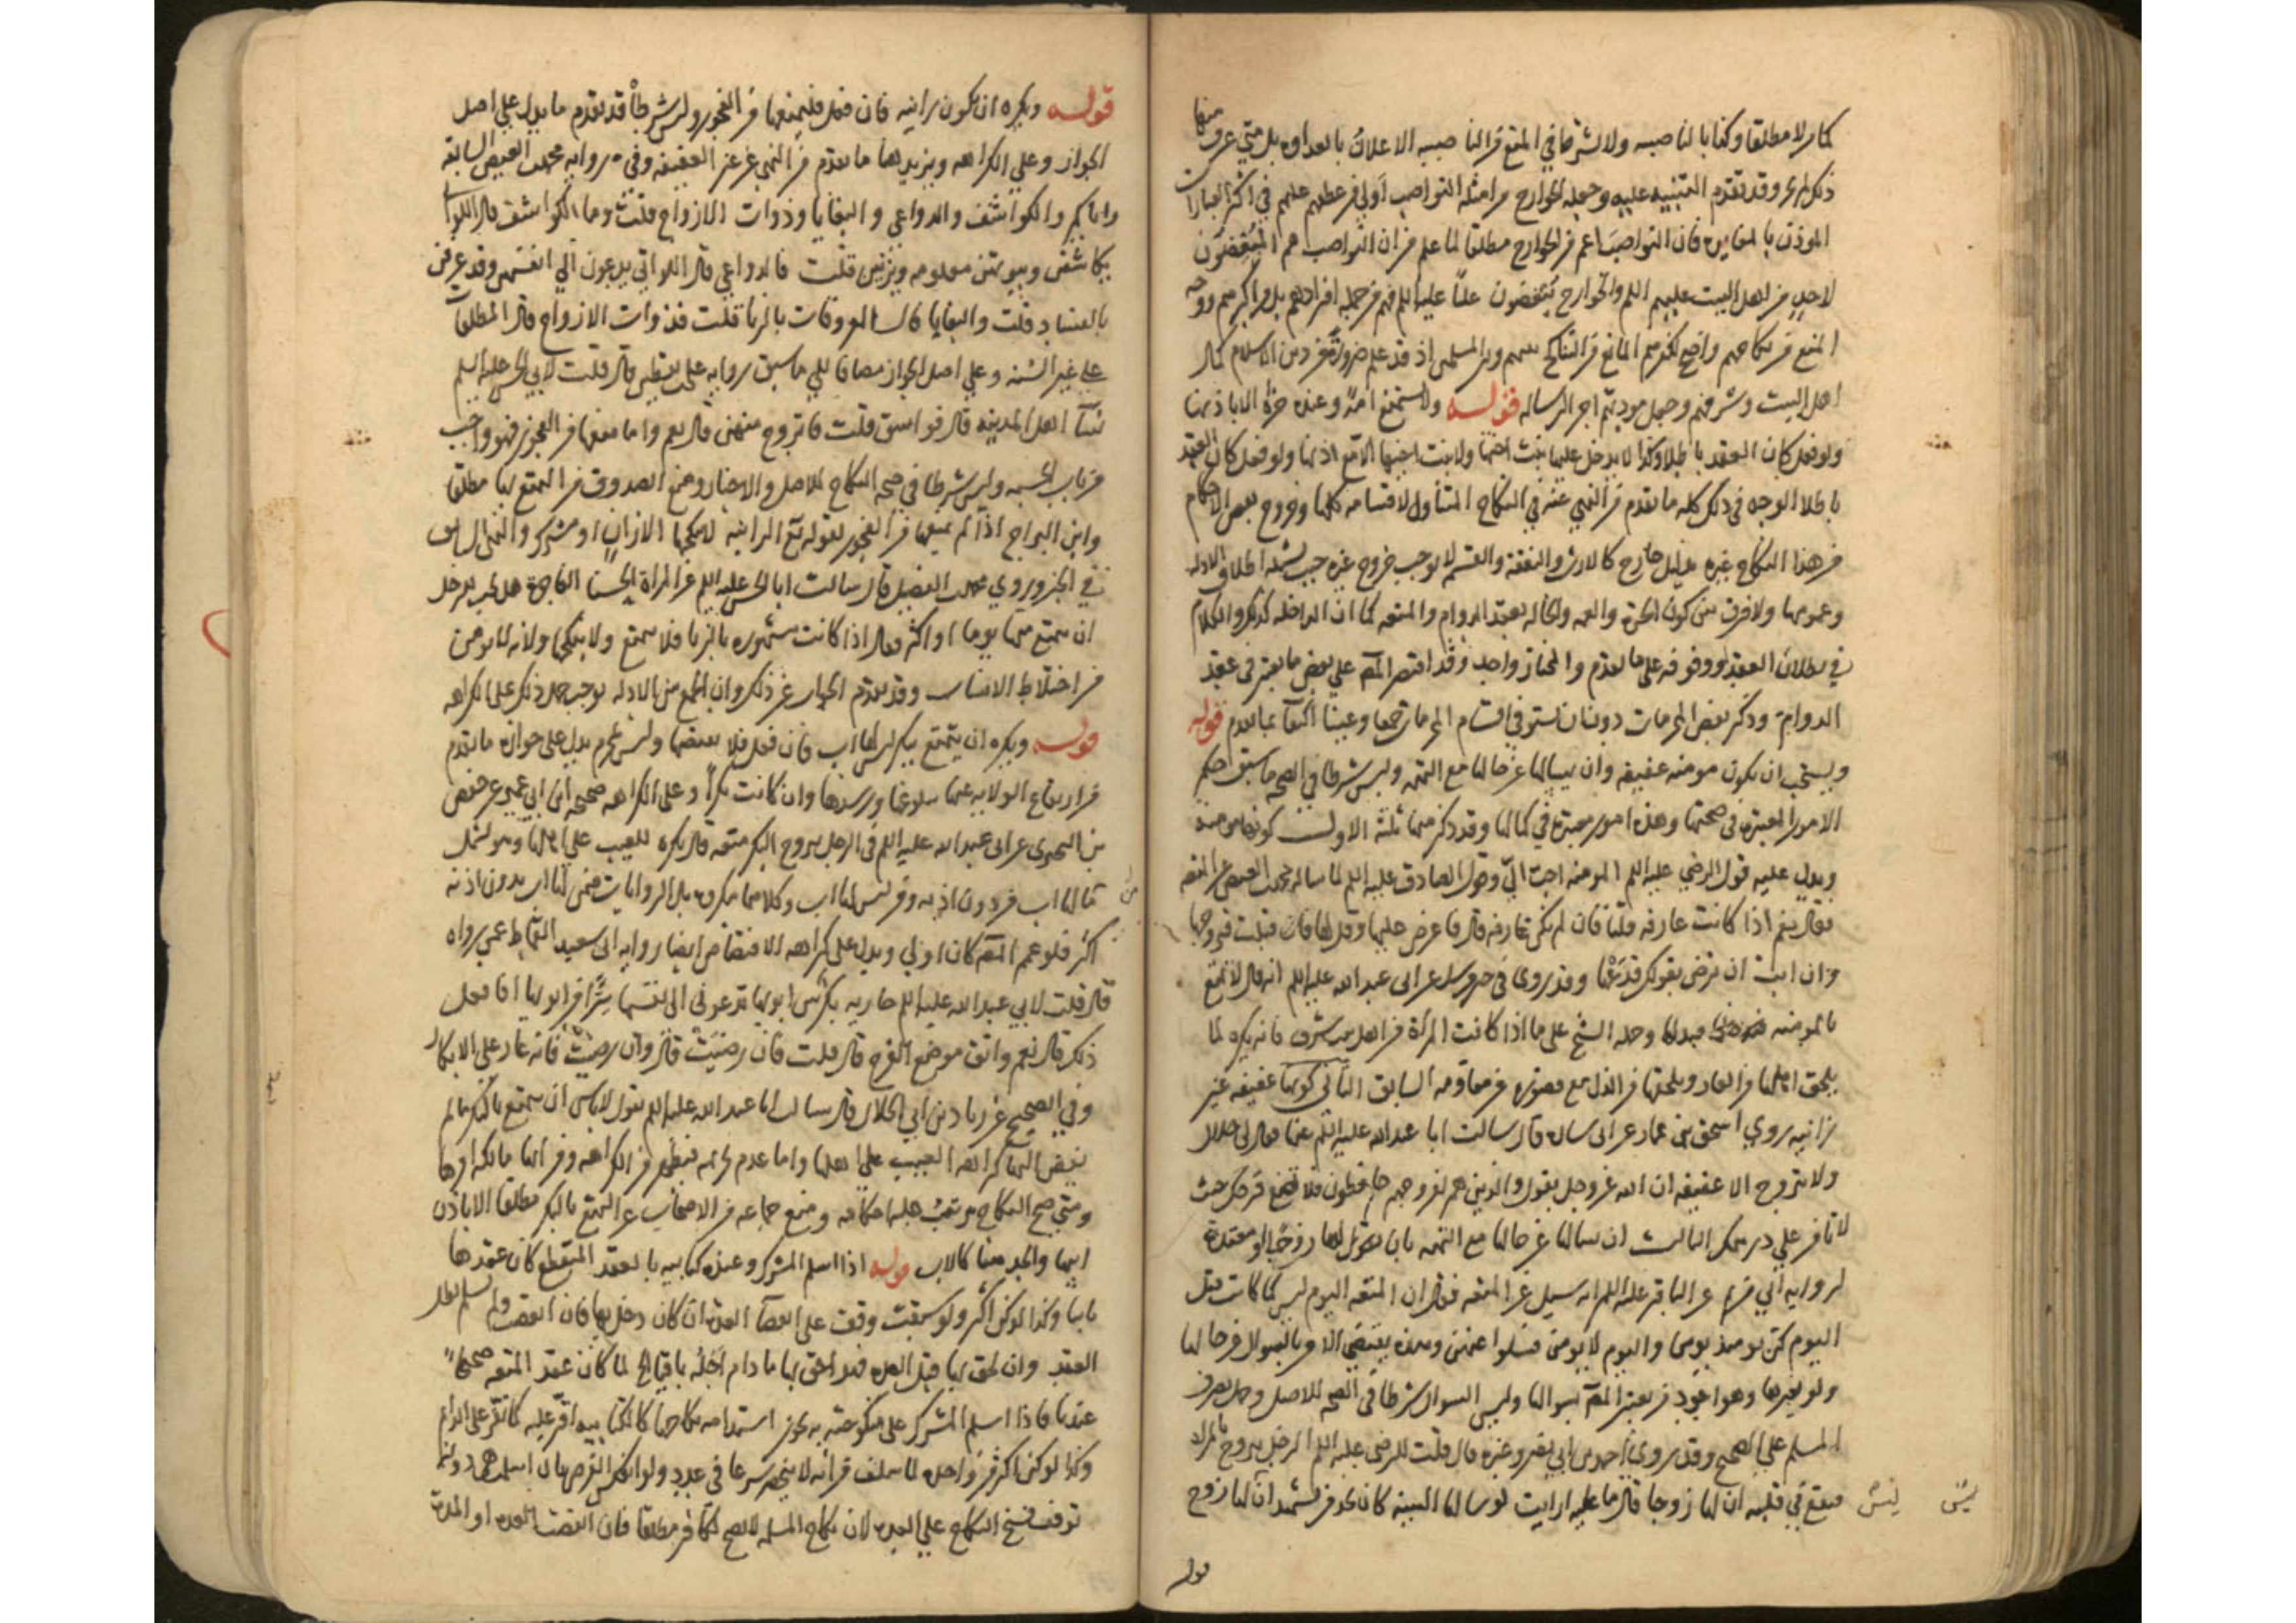 كما مر لا مطلقا وكذا بالناصبيه ولا يشترط في المنع من الناصبيه الاعلان بالعداوه بل متى عرف منها
ذلك حرم وقد تقدم التنبيه عليه وجعله الخوارج من امثله النواصب اولى من عطفهم عليهم في اكثر العبارات
الموذن بالمغايره فان النواصب اعم من الخوارج مطلقا لما علم من ان النواصب هم المبغضون
لاحد من اهل البيت عليهم السلم والخوارج يبغضون عليا عليه السلم فهم من جمله افرادهم بل من اكبرهم ووجه
المنع من نكاحهم واضح لكفرهم المانع من التناكح بينهم وبين المسلمين اذ قد علم ضرورة من دين الاسلام كمال
اهل البيت وشرفهم وجعل مودتهم اجر الرساله قوله ولا يستمتع امة وعنده حرة الا باذنها
ولو فعل كان العقد باطلا وكذا لا يدخل عليها بنت اختها ولا بنت اخيها الا مع اذنها ولو فعل كان العقد
باطلا الوجه في ذلك كله ما تقدم من النهي عنه في النكاح المتناول لاقسامه كلها وخروج بعض الاحكام
من هذا النكاح عن غيره بدليل خارج كالارث والنفقة والقسم لا يوجب خروج غيره حيث يشمله اطلاق الادله
وعمومها ولا فرق بين كون الحرة والعمه والخاله بعقد الدوام والمتعه كما ان الداخله كذلك والكلام
في بطلان العقد او وقوفه على ما تقدم والمختار واحد وقد اقتصر المصه على بعض ما يعتبر في عقد
الدوام وذكر بعض المحرمات دون ان يستوفي اقسام المحرمات جمعا وعينا اكتفاء بما تقدم قوله
ويستحب ان يكون مومنه عفيفه وان يسالها عن حالها مع التهمه وليس شرطا في الصحه ما سبق احكم
الامور المعتبره في صحتها وهذه امور معتبره في كمالها وقد ذكر منها ثلثه الاول كونها مومنه
ويدل عليه قول الرضي عليه السلم المومنه احب الي وقول الصادق عليه السلم لما ساله محمد بن الفيض عن المتعه
فقال نعم اذا كانت عارفه قلنا فان لم تكن عارفه قال فاعرض عليها وقل لها فان قبلت فتزوجها
وان ابت ان ترضى بقولك فدعها وقد روى في مرسل عن ابي عبد الله عليه السلم انه قال لا تمتع
بالمومنه فتذلها وحمله الشيخ على ما اذا كانت المراة من اهل بيت شرف فانه يكره لما
يلحق اهلها من العار ويلحقها من الذل مع قصوره عن مقاومه السابق الثاني كونها عفيفه غير
زانيه روى اسحق بن عمار عن ابي ساره قال سالت ابا عبد الله عليه السلم عنها فقال لي حلال
ولا تتزوج الا عفيفه ان الله عز وجل يقول والذين هم لفروجهم حافظون فلا تضع فرجك حيث
لا تامن على درهمك الثالث ان يسالها عن حالها مع التهمه بان يقول لها زوج او معتدة
لروايه ابي مريم عن الباقر عليه السلم انه سيل عن المتعه فقال ان المتعه اليوم ليس كما كانت قبل
اليوم كن يومئذ يومن واليوم لا يومن فسلوا عنهن وهذه يقتضي الامر بالسوال من حالها
ولو بغيرها وهو اجود من تعبير المصه بسوالها وليس السوال شرطا في الصحه للاصل وحمل تصرف
المسلم على الصحيح وقد روى احمد بن ابي نصر وغيره قال قلت للرضي عليه السلم الرجل يتزوج بالمراة
فيقع في قلبه ان لها زوجا قال ما عليه ارايت لو سالها البينه كان يجد من يشهد ان ليس لها زوج
قوله
قوله ويكره ان تكون زانيه فان فعل فليمنعها من الفجور وليس شرطا قد تقدم ما يدل على اصل
الجواز وعلى الكراهه ويزيدها ما تقدم من النهي عن غير العفيفه وفي روايه محمد بن الفيض السابقه
واياكم والكواشف والدواعي والبغايا وذوات الازواج قلت وما الكواشف قال اللواتي
يكاشفن وبيوتهن معلومه ويزنين قلت فالدواعي قال اللواتي يدعون الى انفسهن وقد عرفن
بالفساد قلت والبغايا قال المعروفات بالزنا قلت فذوات الازواج قال المطلقات
على غير السنه وعلى اصل الجواز مضافا الى ما سبق روايه علي بن يقطين قال قلت لابي الحسن عليه السلم
نساء اهل المدينه قال فواسق قلت فاتزوج منهن قال نعم واما منعها من الفجور فهو واجب
من باب الحسبه وليس شرطا في صحه النكاح للاصل والاخبار ومنع الصدوق من التمتع بها مطلقا
وابن البراج اذا لم يمنعها من الفجور لقوله تع الزانيه لا ينكحها الا زان او مشرك والنهي السابق
في الخبر وروى محمد بن الفضيل قال سالت ابا الحسن عليه السلم عن المراة الحسناء الفاجرة هل يحب للرجل
ان يتمتع منها يوما او اكثر فقال اذا كانت مشهوره بالزنا فلا يتمتع ولا ينكحها ولانه لا يومن
من اختلاط الانساب وقد تقدم الجواب عن ذلك وان الجمع بين الادله يوجب حمل ذلك على الكراهه
قوله ويكره ان يتمتع ببكر ليس لها اب فان فعل فلا يفتضها وليس بمحرم يدل على جوازه ما تقدم
من ارتفاع الولايه عنها ببلوغها ورشدها وان كانت بكرا وعلى الكراهه صحيحه ابن ابي عمير عن حفص
بن البحتري عن ابي عبد الله عليه السلم في الرجل يتزوج البكر متعه قال يكره للعيب على اهلها وهو يشمل
ما لها اب من دون اذنه ومن ليس لها اب وكلاهما مكروه بل الروايات فيمن لها اب بدون اذنه
اكثر فلو عمم المصه كان اولى ويدل على كراهه الافتضاض ايضا روايه ابي سعيد القماط عمن رواه
قال قلت لابي عبد الله عليه السلم جاريه بكر بين ابويها تدعوني الى نفسها سرا من ابويها افافعل
ذلك قال نعم واتق موضع الفرج قال قلت فان رضيت قال وان رضيت فانه عار على الابكار
وفي الصحيح عن زياد بن ابي الحلال قال سالت ابا عبد الله عليه السلم يقول لا باس ان يتمتع بالبكر ما لم
يفض اليها كراهه العيب على اهلها واما عدم تحريمه فيظهر من الكراهه ومن انها مالكه امرها
ومتى صح النكاح ترتبت عليه احكامه ومنع جماعه من الاصحاب من التمتع بالبكر مطلقا الا باذن
ابيها والجد هنا كالاب قوله اذا اسلم المشرك وعنده كتابيه بالعقد المنقطع كان عقدها
ثابتا وكذا لو كن اكثر ولو سبقت وقف على انقضاء العده ان كان دخل بها فان انقضت ولم يسلم بطل
العقد وان لحق بها قبل العده فهو احق بها ما دام اجله باقيا لما كان عقد المتعه صحيحا
عندنا فاذا اسلم المشرك على منكوحته به يجوز استدامه نكاحها كالكتابيه اقر عليه كما تقر على الدوام
وكذا لو كن اكثر من واحده لما سلف من انه لا ينحصر شرعا في عدد ولو انعكس الفرض بان اسلمت هي دونه
توقف فسخ النكاح على العده لان نكاح المسلمه لا يصح لكافر مطلقا فان انقضت العده او المده